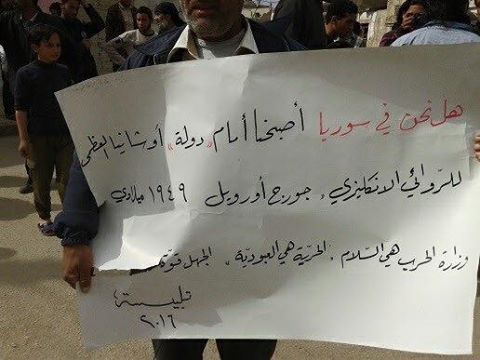 هل نحن في سوريا أصبحنا أمام "دولة" أوشانيا العظمى
للروائي الانكليزي، جورج أورويل ١٩٤٩ ميلادي
وزارة الحرب هي السّلام. الحرّية هي العبوديّة. الجهل قوّة
تلبيسة
٢٠١٦